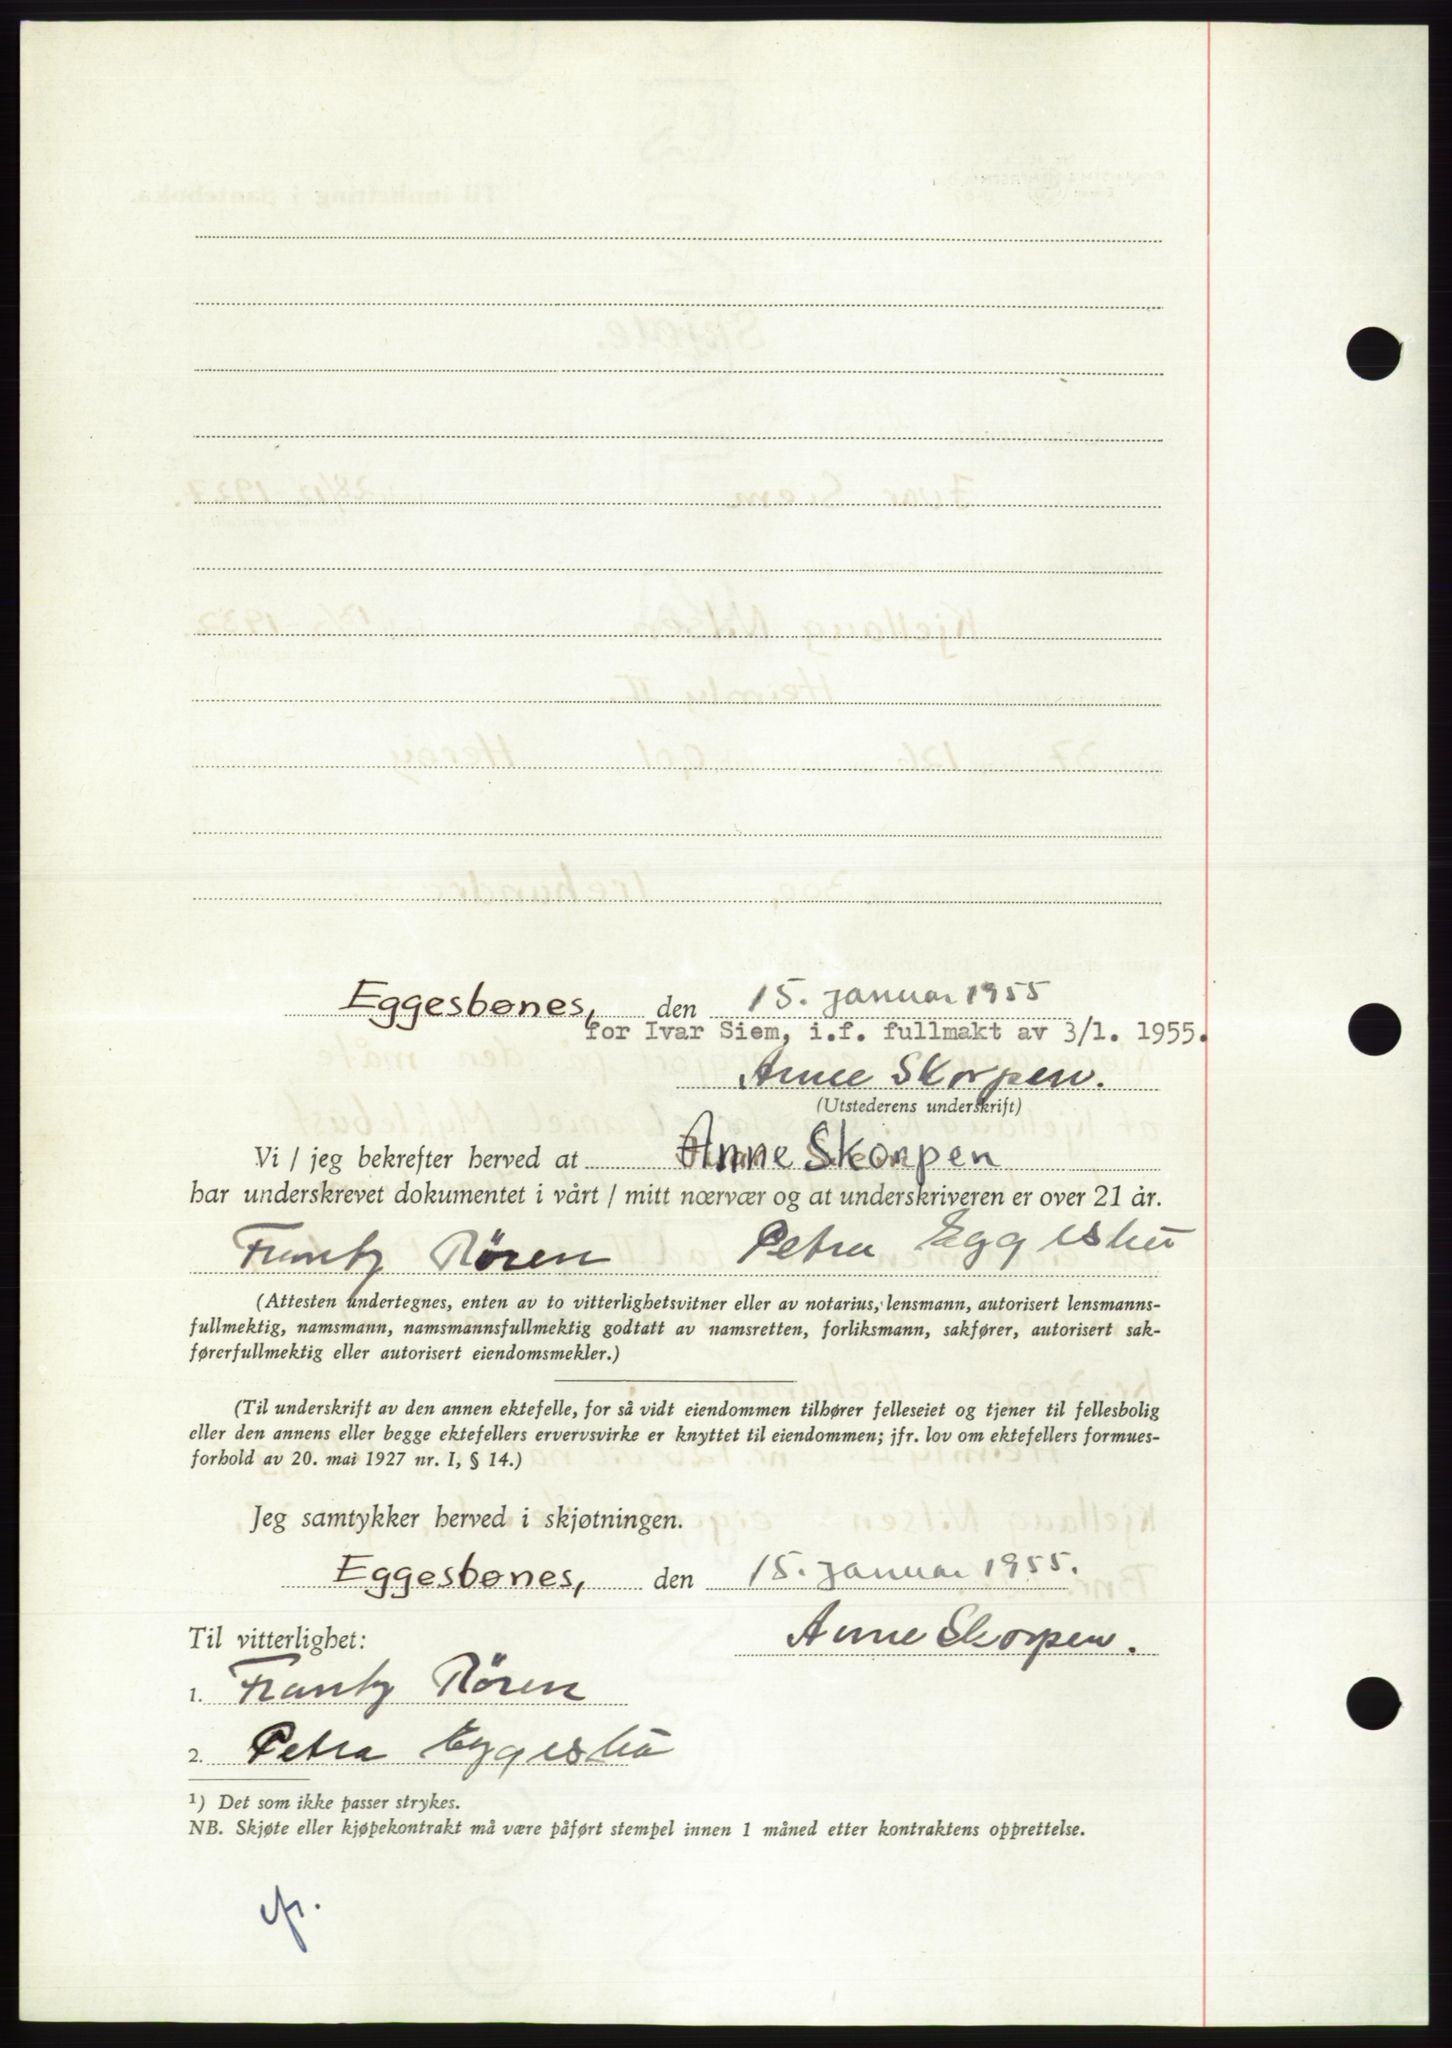 Eggesbønes, den 15. januar 1955
for Ivar Siem, i.f. fullmakt av 3/1. 1955.
Anne Skorpen.
(Utstederens underskrift)
Vi / jeg bekrefter herved at Anne Skorpen
har underskrevet dokumentet i vårt / mitt nærvær og at underskriveren er over 21 år.
Frantz Røren Petra Eggesbø
(Attesten undertegnes, enten av to vitterlighetsvitner eller av notarius, lensmann, autorisert lensmanns-
fullmektig, namsmann, namsmannsfullmektig godtatt av namsretten, forliksmann, sakfører, autorisert sak-
førerfullmektig eller autorisert eiendomsmekler.)
(Til underskrift av den annen ektefelle, for så vidt eiendommen tilhører felleseiet og tjener til fellesbolig
eller den annens eller begge ektefellers ervervsvirke er knyttet til eiendommen; jfr. lov om ektefellers formues-
forhold av 20. mai 1927 nr. 1, § 14.)
Jeg samtykker herved i skjøtningen.
Eggesbønes, den 15. januar 1955.
Til vitterlighet:
Anne Skorpen.
1. Frantz Røren
2. Petra Eggesbø
1) Det som ikke passer strykes.
NB. Skjøte eller kjøpekontrakt må være påført stempel innen 1 måned etter kontraktens opprettelse.